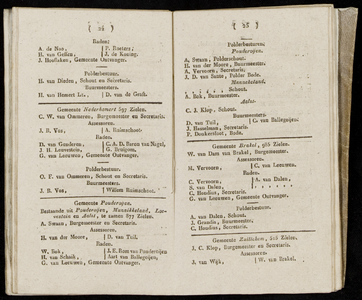 ( 24 )
Raden:
A. de Nun, P. Roeters;
H. van Gessen, J. de Koning.
J. Hooflaken, Gemeente Ontvanger.
Polderbestuur.
H. van Dieden, Schout en Secretaris.
Buurmeesters.
H. van Hemert Lz., D. van de Graft.
Gemeente Nederhemert 397 Zielen.
C. W. van Ommeren, Burgemeester en Secretaris.
Assessoren.
J. B. Vos, A. Raimschoot.
Raden.
D. van Genderen, C. A. D. Baron van Nagel,
H. Leuvestein, G. Bruijgom,
G. van Leeuwen, Gemeente Ontvanger.
Polderbestuur.
O. F. van Ommeren, Schout en Secretaris.
Buurmeesters.
J. B. Vos, Willem Raimschoot.
Gemeente Poederoijen.
Bestaande uit Poederoijen, Munnikkeland, Loevestein en Aalst, te zamen 877 Zielen.
A. Swaan, Burgemeester en Secretaris.
Assessoren.
H. van der Moore, D. van Tuil.
Raden.
W. Bok, J. E. Rom van Poederoijen
H. van Schaik, Aart van Ballegoijen;
G. van Leeuwen, Gemeente Ontvanger.
( 25 )
Polderbesturen:
Poederoijen.
A. Swaan, Polderschout.
H. van der Moore, Buurmeester.
A. Vervoorn, Secretaris.
J. D. van Zante, Polder Bode.
Munnikkeland.
Schout.
A. Bok, Buurmeester.
Aalst.
C. J. Klop, Schout.
Buurmeesters.
D. van Tuil, G. van Ballegoijen;
J. Hasselman, Secretaris.
P. Donkersloot, Bode.
Gemeente Brakel, 986 Zielen.
W. van Dam van Brakel, Burgemeester.
Assessoren.
H. Vervoorn, C. van Leeuwen.
Raden.
C. Vervoorn, A. van Dalen,
S. van Dalen,
C. Baudius, Secretaris.
G. van Leeuwen, Gemeente Ontvanger.
Polderbestuur.
A. van Dalen, Schout.
J. Grandia, Buurmeester.
C. Baudius, Secretaris.
Gemeente Zuilichem, Zielen.
J. C. Klop, Burgemeester en Secretaris.
Assessoren.
J. van Wijk, W. van Brakel.